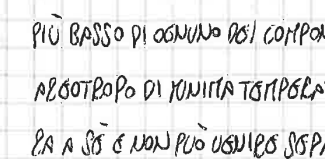 PIÙ BASSO DI OGNUNO DEI COMPON
AZEOTROPO DI MINIMA TEMPERA
RA A SÉ E NON PUÒ VENIRE SEPA